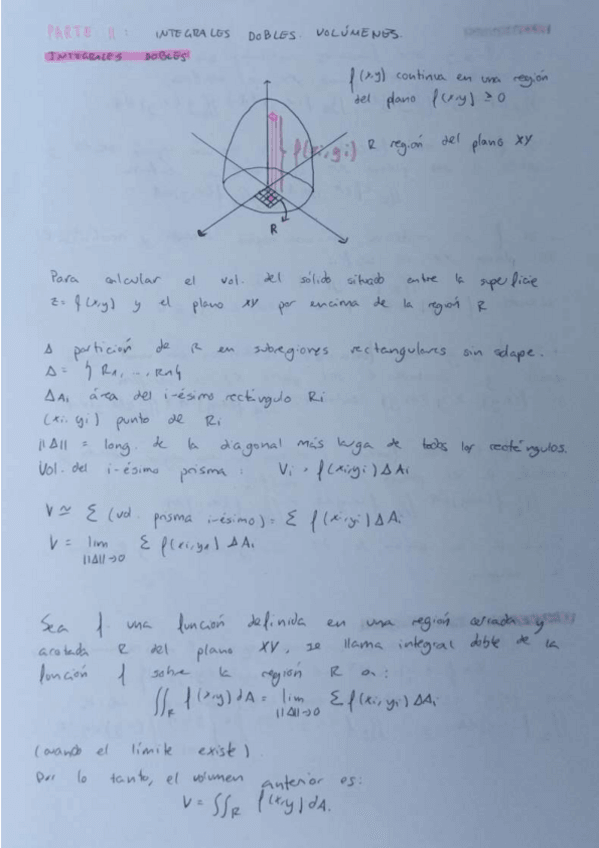 PARTE II: INTEGRALES DOBLES. VOLÚMENES.
INTEGRALES DOBLES
f(x,y) continua en una región
del plano f(x,y) ≥ 0
f(xi,yi) R región del plano XY
R
Para calcular el vol. del sólido situado entre la superficie
z= f(x,y) y el plano XY por encima de la región R
Δ partición de R en subregiones rectangulares sin solape.
Δ= {R1, ..., Rn}
ΔAi área del i-ésimo rectángulo Ri
(xi, yi) punto de Ri
||Δ|| = long. de la diagonal más larga de todos los rectángulos.
Vol. del i-ésimo prisma: Vi = f(xi,yi) ΔAi
V ≃ Σ (vol. prisma i-ésimo) = Σ f(xi,yi) ΔAi
V = lim Σ f(xi,yi) ΔAi
||Δ||→0
Sea f una función definida en una región cerrada y
acotada R del plano XY, se llama integral doble de la
función f sobre la región R a:
∬R f(x,y) dA = lim Σ f(xi, yi) ΔAi
||Δ||→0
(cuando el límite existe)
Por lo tanto, el volumen anterior es:
V = ∬R f(x,y) dA.